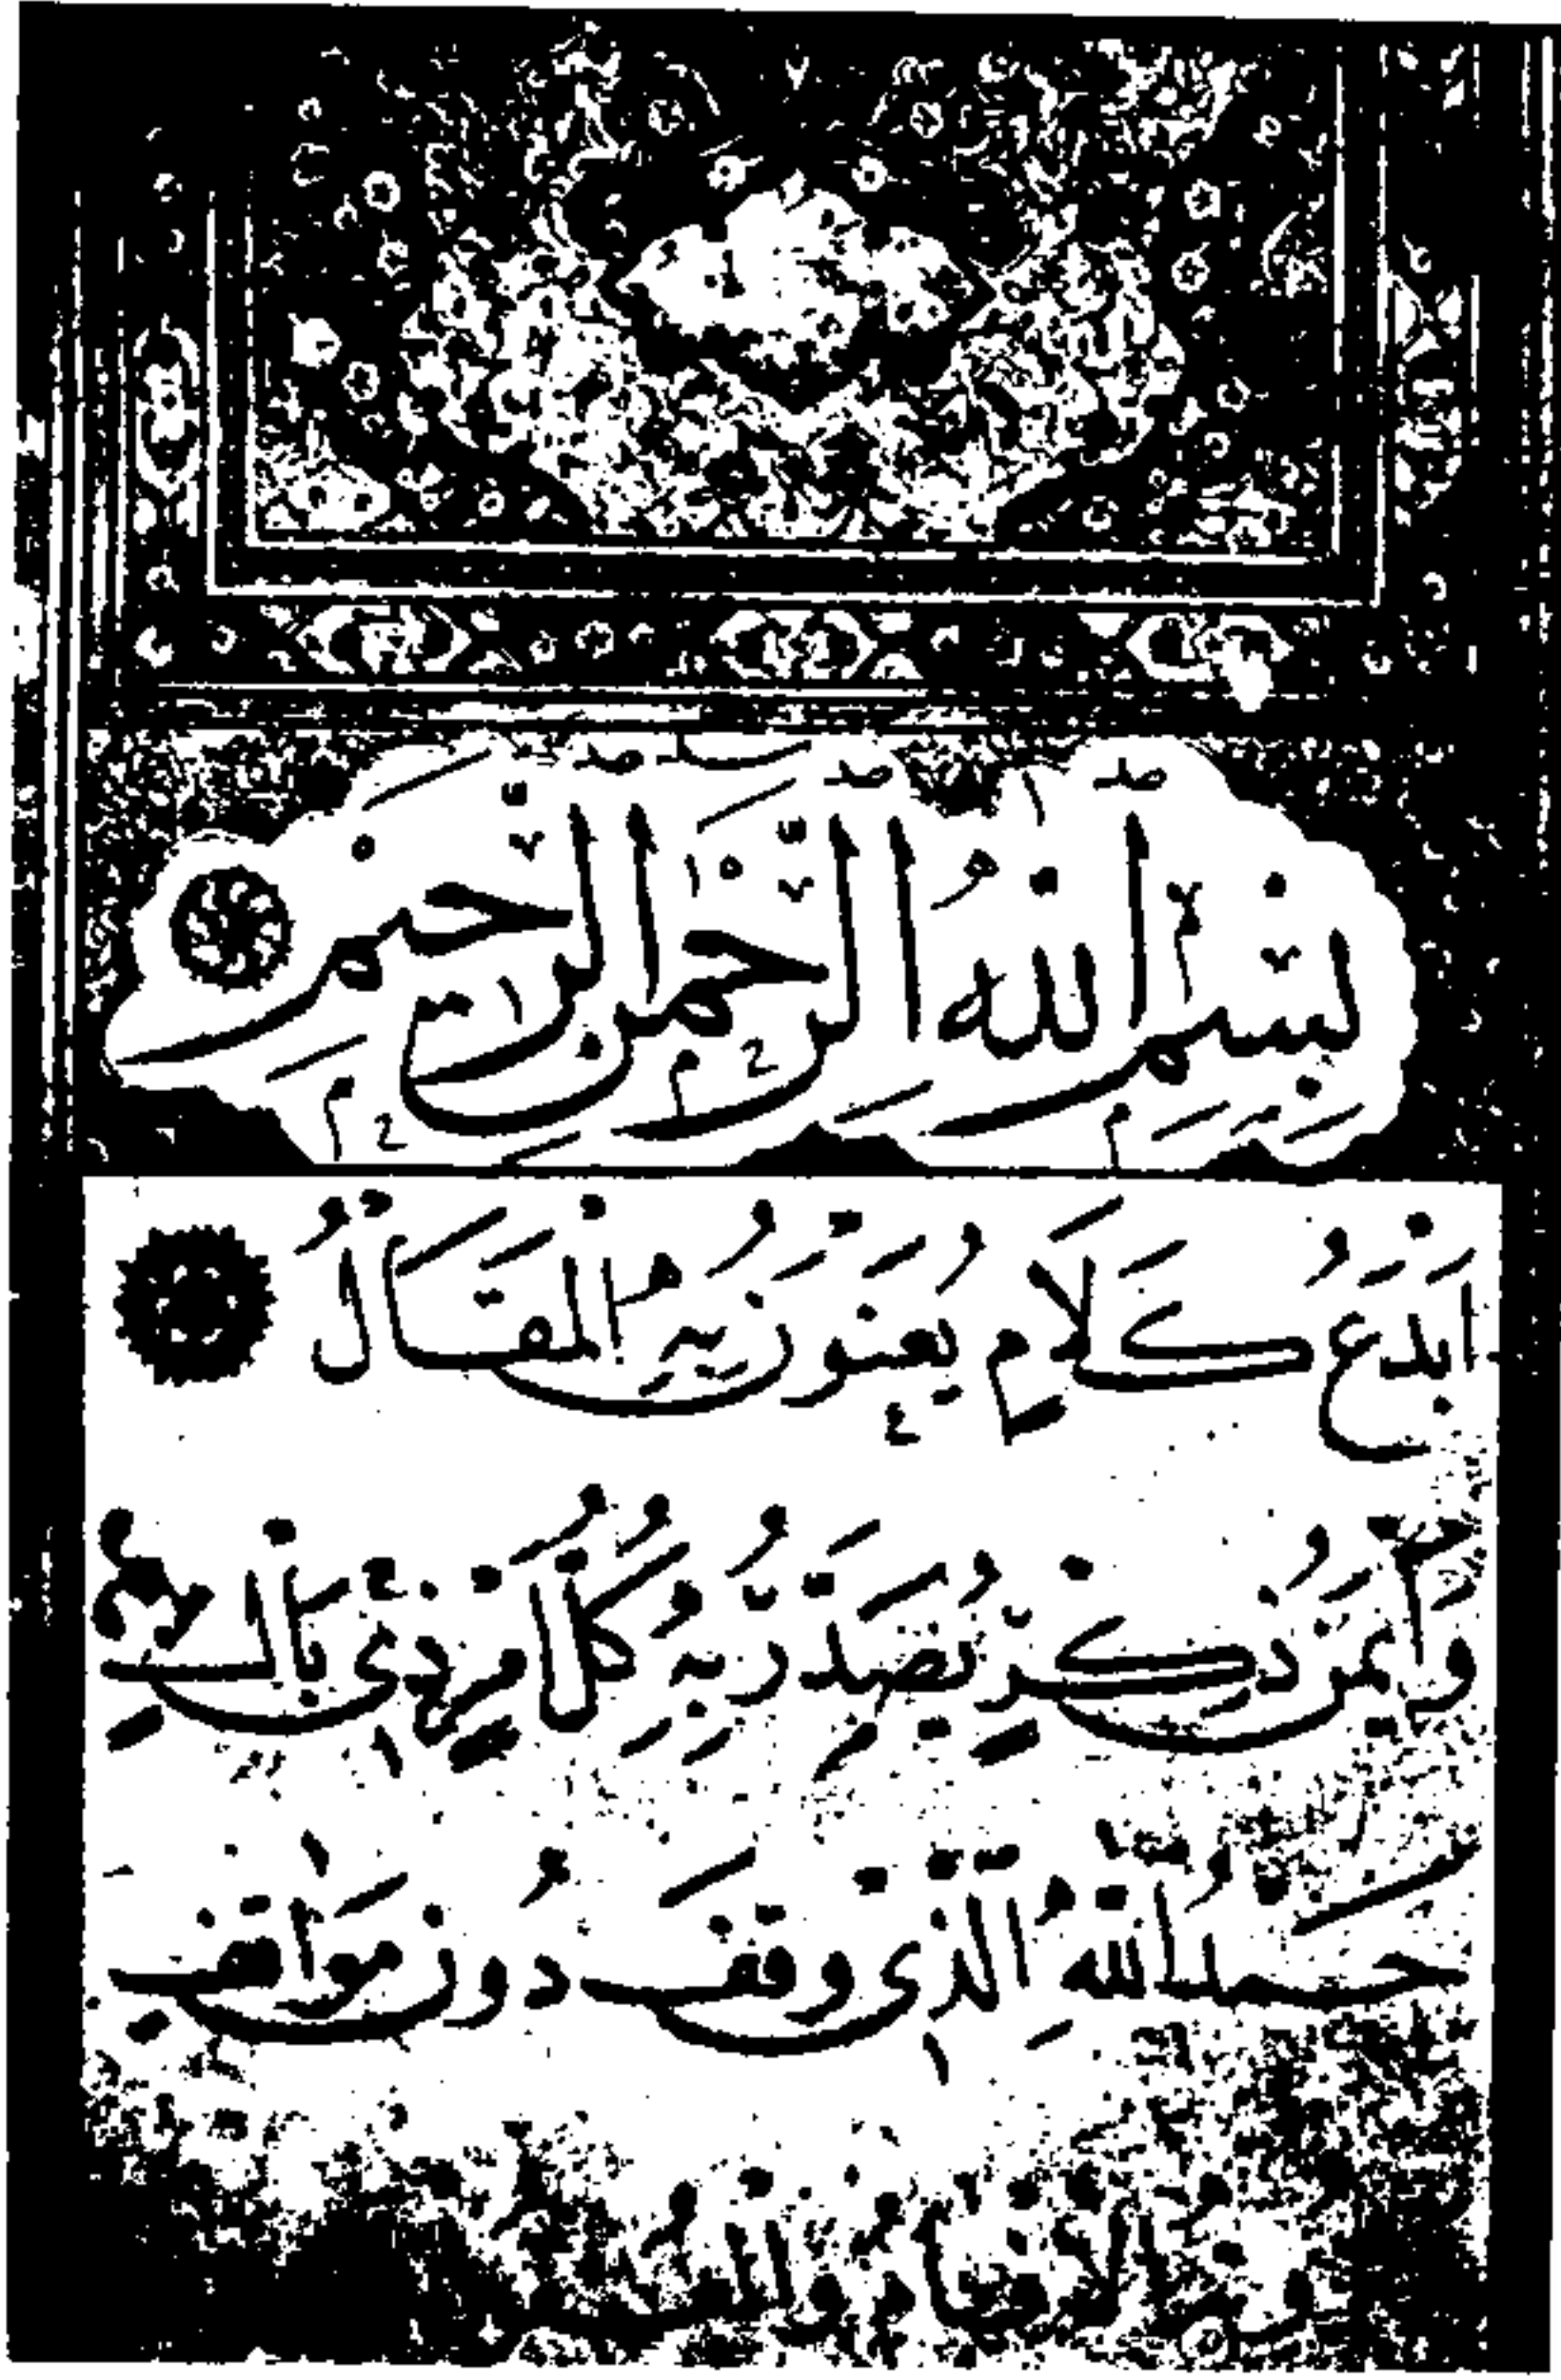 بِسْمِ اللهِ الرَّحْمٰنِ الرَّحِيْمِ
اَبْدَعُ كَلَامٍ يُعَنْوَنُ بِهِ الْمَقَالُ
وَاَيْمَنُ ذِكْرٍ يُصَدَّرُ بِهِ كُلُّ اَمْرٍ ذِى بَالٍ
حَمْدُ اللهِ الَّذِى وَقَفَ دُونَ مَوَاقِفِ